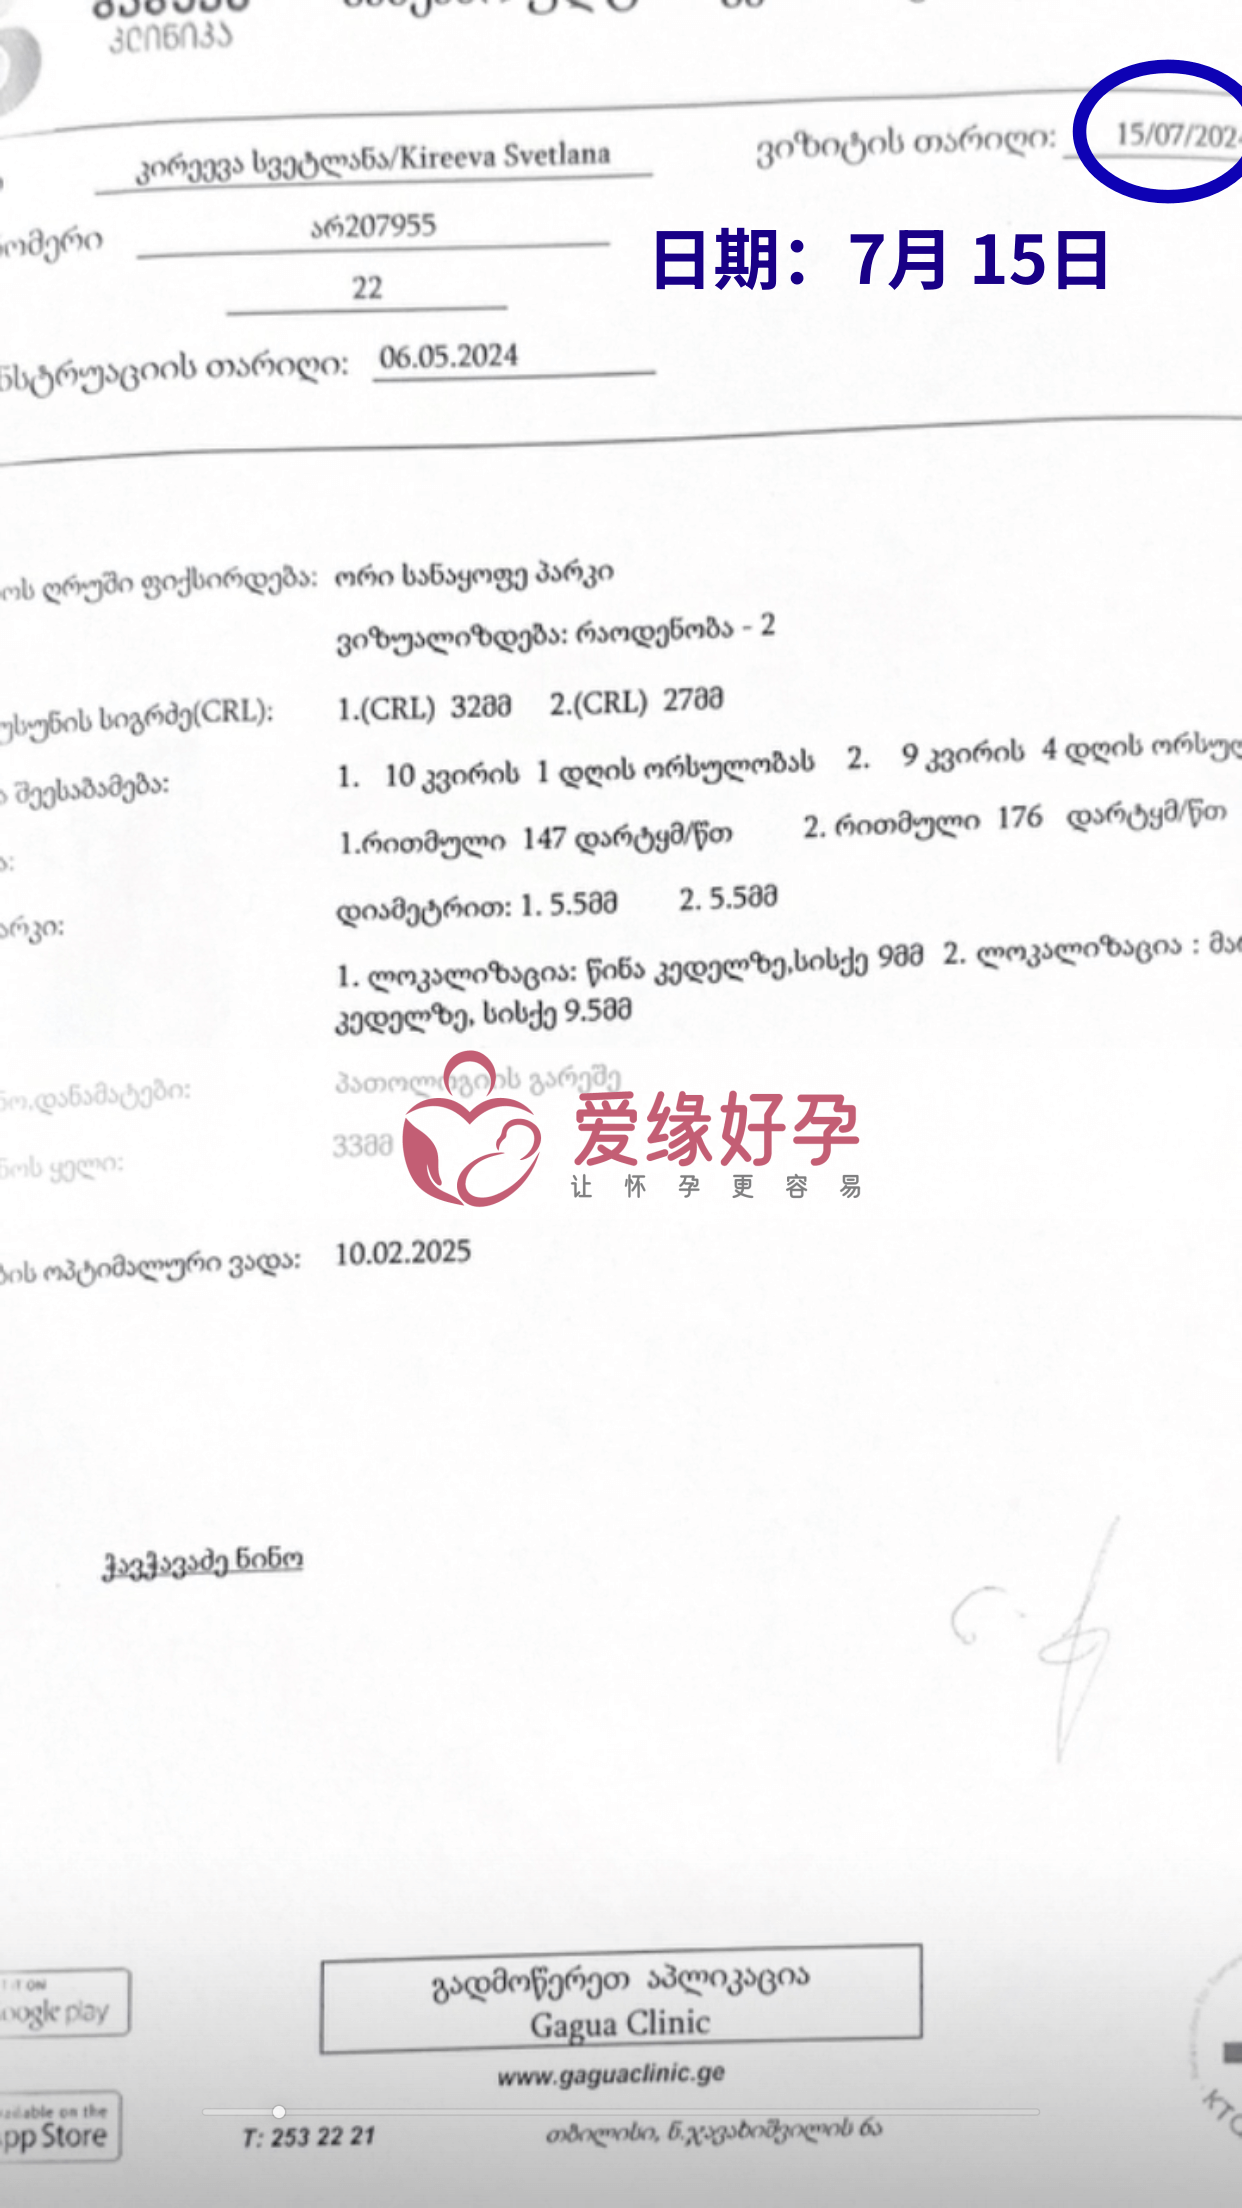 კლინიკა
კირეევა სვეტლანა/Kireeva Svetlana
ვიზიტის თარიღი: 15/07/202
ნომერი არ207955
日期：7月 15日
22
ნსტრუაციის თარიღი: 06.05.2024
ოს ღრუში ფიქსირდება: ორი სანაყოფე პარკი
ვიზუალიზდება: რაოდენობა - 2
უსუნის სიგრძე(CRL): 1.(CRL) 32მმ 2.(CRL) 27მმ
ა შეესაბამება: 1. 10 კვირის 1 დღის ორსულობას 2. 9 კვირის 4 დღის ორსულ
ა: 1.რითმული 147 დარტყმ/წთ 2. რითმული 176 დარტყმ/წთ
არკი: დიამეტრით: 1. 5.5მმ 2. 5.5მმ
1. ლოკალიზაცია: წინა კედელზე,სისქე 9მმ 2. ლოკალიზაცია :
კედელზე, სისქე 9.5მმ
ნო,დანამატები: პათოლოგიის გარეშე
爱缘好孕
ნოს ყელი: 33მმ
让怀孕更容易
ბის ოპტიმალური ვადა: 10.02.2025
ჭავჭავაძე ნინო
გადმოწერეთ აპლიკაცია
IT ON
oogle play
Gagua Clinic
www.gaguaclinic.ge
ailable on the
pp Store
T: 253 22 21
თბილისი, ნ.ჯავახიშვილის 6ა